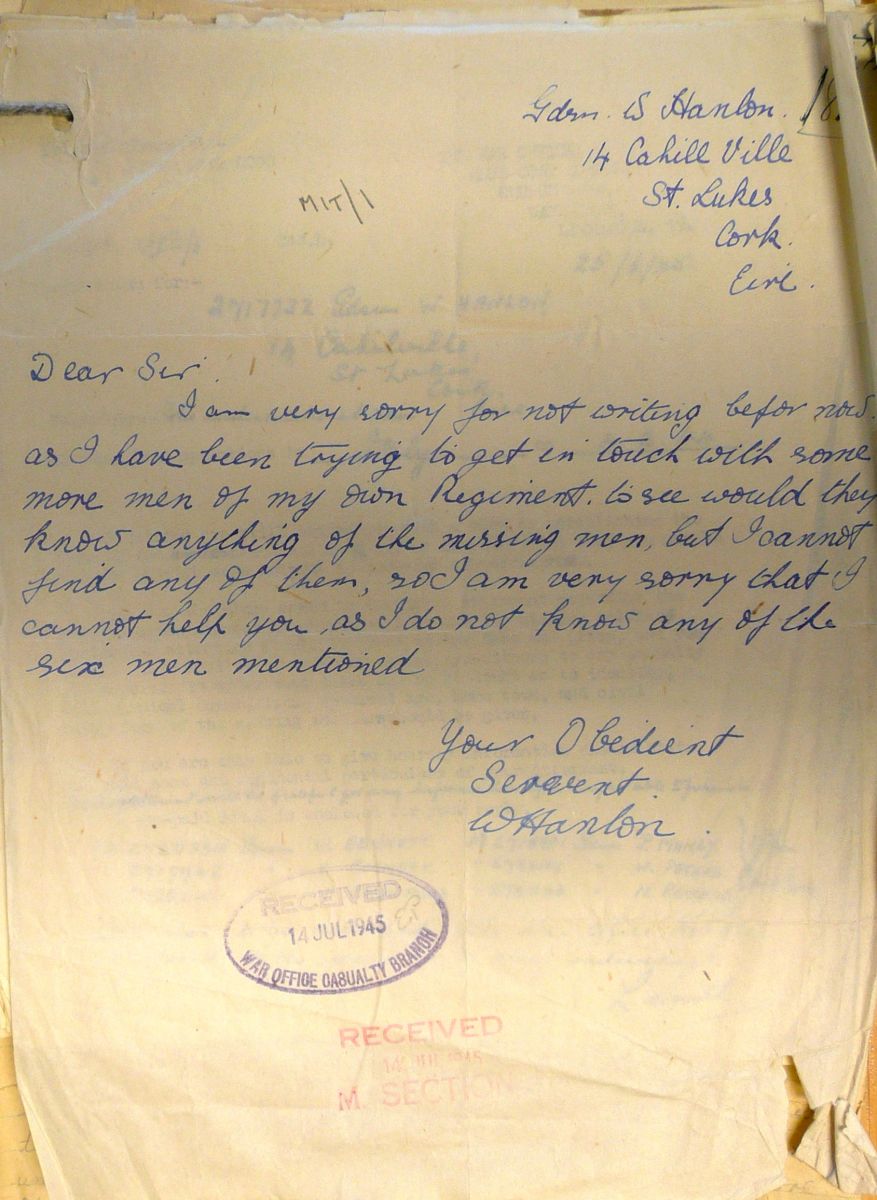 Gdsn. W Hanlon.
14 Cahill Ville
St. Lukes
Cork.
Eire.
MIT/1
2717722 Gdsn W HANLON
14 Cahillville
St Lukes
Cork
Dear Sir.
I am very sorry for not writing befor now.
as I have been trying to get in touch with some
more men of my own Regiment. to see would they
know anything of the missing men, but I cannot
find any of them, so I am very sorry that I
cannot help you, as I do not know any of the
six men mentioned
Your Obedient
Servent.
W Hanlon.
RECEIVED
14 JUL 1945
WAR OFFICE CASUALTY BRANCH
RECEIVED
14 JUL 1945
M. SECTION